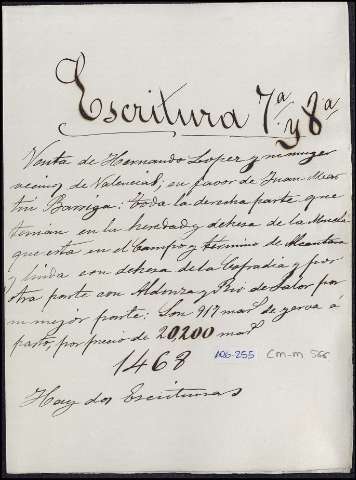 Escritura 7ª y 8ª
Venta de Hernando Lopez y su muger
vecinos de Valencia, en favor de Juan Mar
tin Barriga: toda la derecha parte que
tenian en la heredad y dehesa de la
que esta en el Campo y término de Alcantara
y linda con dehesa de la Cofradia y por
otra parte con y Rio de Salor por
su mejor parte: Son 917 mars de yerva á
pasto, por precio de 20200 mars
1468
ARG-255 CM-M 566
Hay dos Escrituras